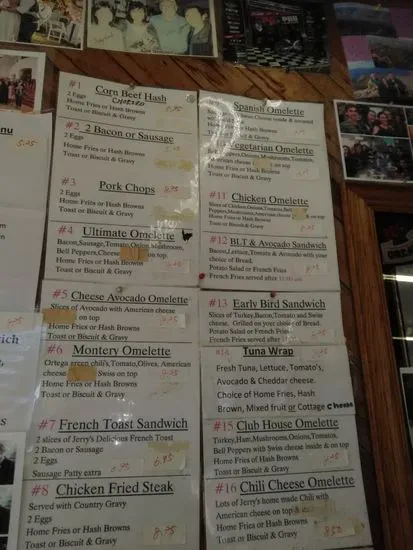 enu
5.25
#1
Corn Beef Hash
CHORIZO
2 Eggs
Home Fries or Hash Browns
Toast or Biscuit & Gravy
#2 2 Bacon or Sausage
2 Eggs
Home Fries or Hash Browns
Toast or Biscuit & Gravy
#3
Pork Chops
2 Eggs
Home Fries or Hash Browns
Toast or Biscuit & Gravy
#4 Ultimate Omelette
Bacon,Sausage,Tomato,Onion,Mushroom,
Bell Peppers,Cheese on top.
Home Fries or Hash Browns
Toast or Biscuit & Gravy
#5 Cheese Avocado Omelette
Slices of Avocado with American cheese
on top
Home Fries or Hash Browns
Toast or Biscuit & Gravy
#6 Montery Omelette
Ortega green chili's,Tomato,Olives, American
cheese Swiss on top
Home Fries or Hash Browns
Toast or Biscuit & Gravy
#7 French Toast Sandwich
2 slices of Jerry's Delicious French Toast
2 Bacon or Sausage
2 Eggs
Sausage Patty extra
6.95
#8 Chicken Fried Steak
Served with Country Gravy
2 Eggs
Home Fries or Hash Browns
Toast or Biscuit & Gravy
8.75
Spanish Omelette
Cheese inside &
Home Fries or Hash Browns
Toast or Biscuit & Gravy
Vegetarian Omelette
Bell Peppers,Onions,Mushrooms,Tomatoes,
American cheese on top
Home Fries or Hash Browns
Toast or Biscuit & Gravy
#11 Chicken Omelette
Slices of Chicken,Onions,Tomatoes,Bell
Peppers,Mushrooms,American cheese & on top
Home Fries or Hash Browns
Toast or Biscuit & Gravy
#12 BLT & Avocado Sandwich
Bacon,Lettuce,Tomato & Avocado with your
choice of Bread.
Potato Salad or French Fries
French Fries served after
#13 Early Bird Sandwich
Slices of Turkey,Bacon,Tomato and Swiss
cheese. Grilled on your choice of Bread.
Potato Salad or French Fries
French Fries served after
#14 Tuna Wrap
Fresh Tuna, Lettuce, Tomato's,
Avocado & Cheddar cheese.
Choice of Home Fries, Hash
Brown, Mixed fruit or Cottage Cheese
#15 Club House Omelette
Turkey,Ham,Mushrooms,Onions,Tomatoes,
Bell Peppers with Swiss cheese inside & on top
Home Fries or Hash Browns
Toast or Biscuit & Gravy
#16 Chili Cheese Omelette
Lots of Jerry's home made Chili with
American cheese on top &
Home Fries or Hash Browns
Toast or Biscuit & Gravy
8.50